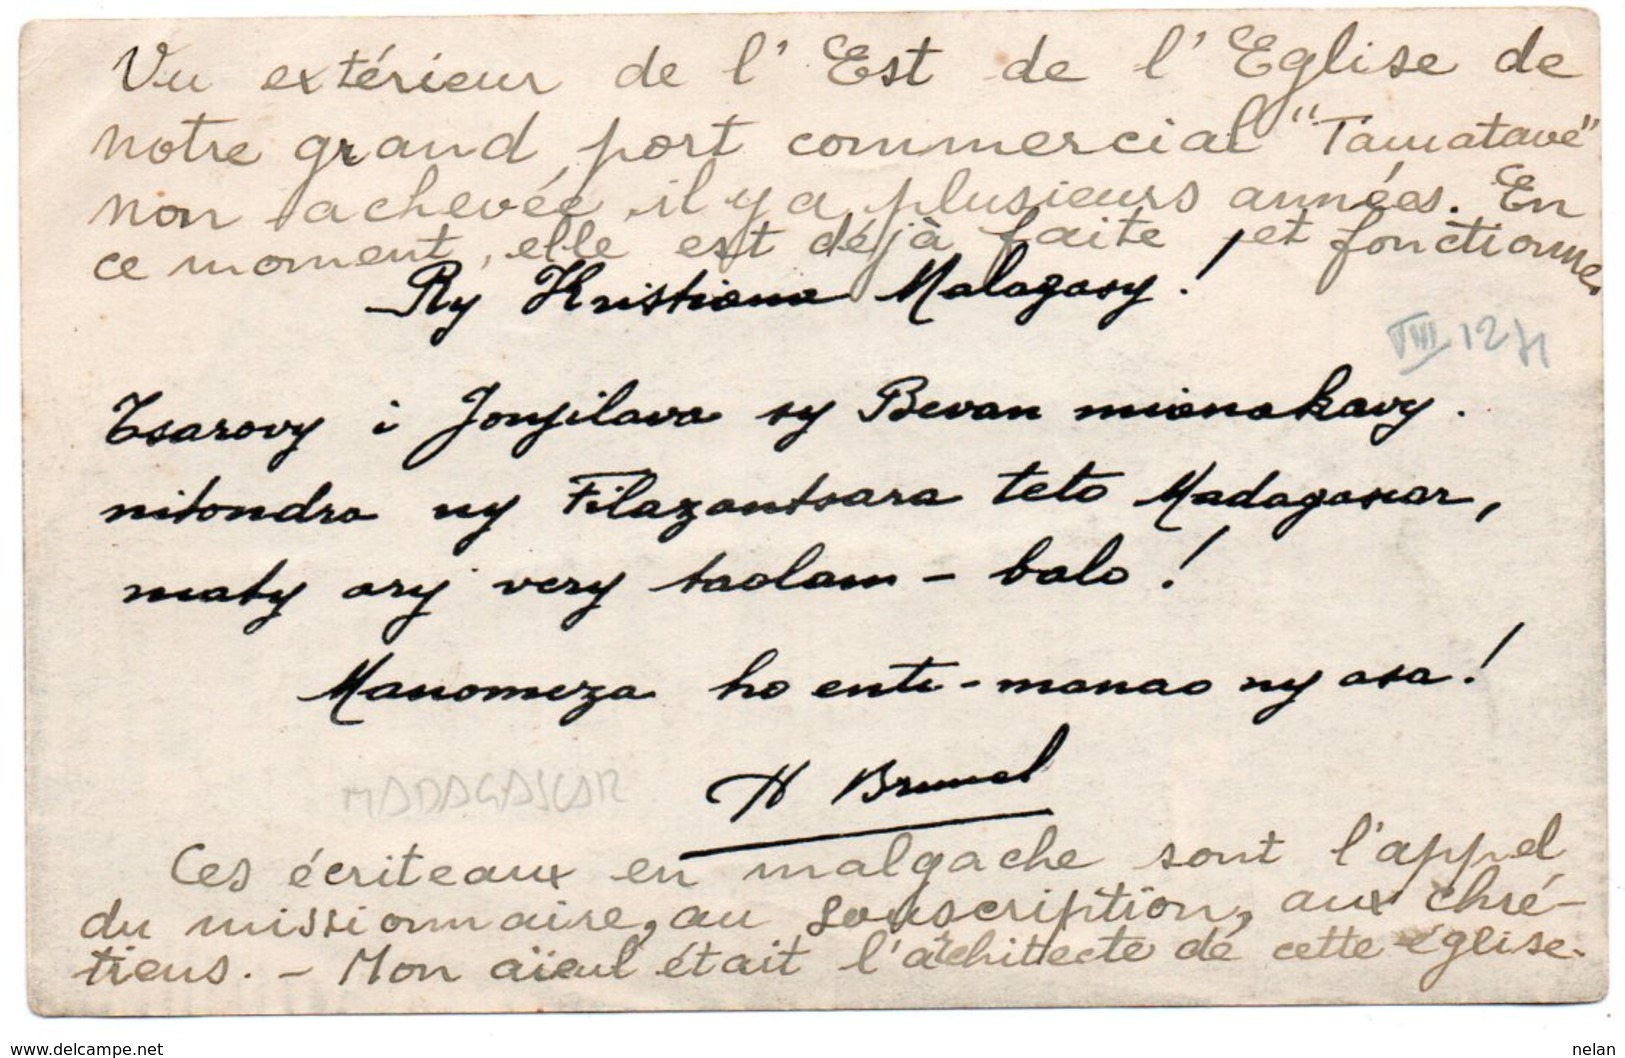 Vu extérieur de l'Est de l'Eglise de
notre grand port commercial "Tamatave"
non achevée, il y a plusieurs années. En
ce moment, elle est déjà faite, et fonctionne.
Ry Kristiana Malagasy!
VIII 1271
Tsarovy i Jonjilava sy Bevan mianakavy.
nitondra ny Filazantsara teto Madagascar,
maty ary very taolam-balo!
Manomeza ho enti-manao ny asa!
H Brunel
MADAGASCAR
Ces écriteaux en malgache sont l'appel
du missionnaire, au souscription, aux chré-
tiens. - Mon aïeul était l'architecte de cette église.
www.delcampe.net
nelan